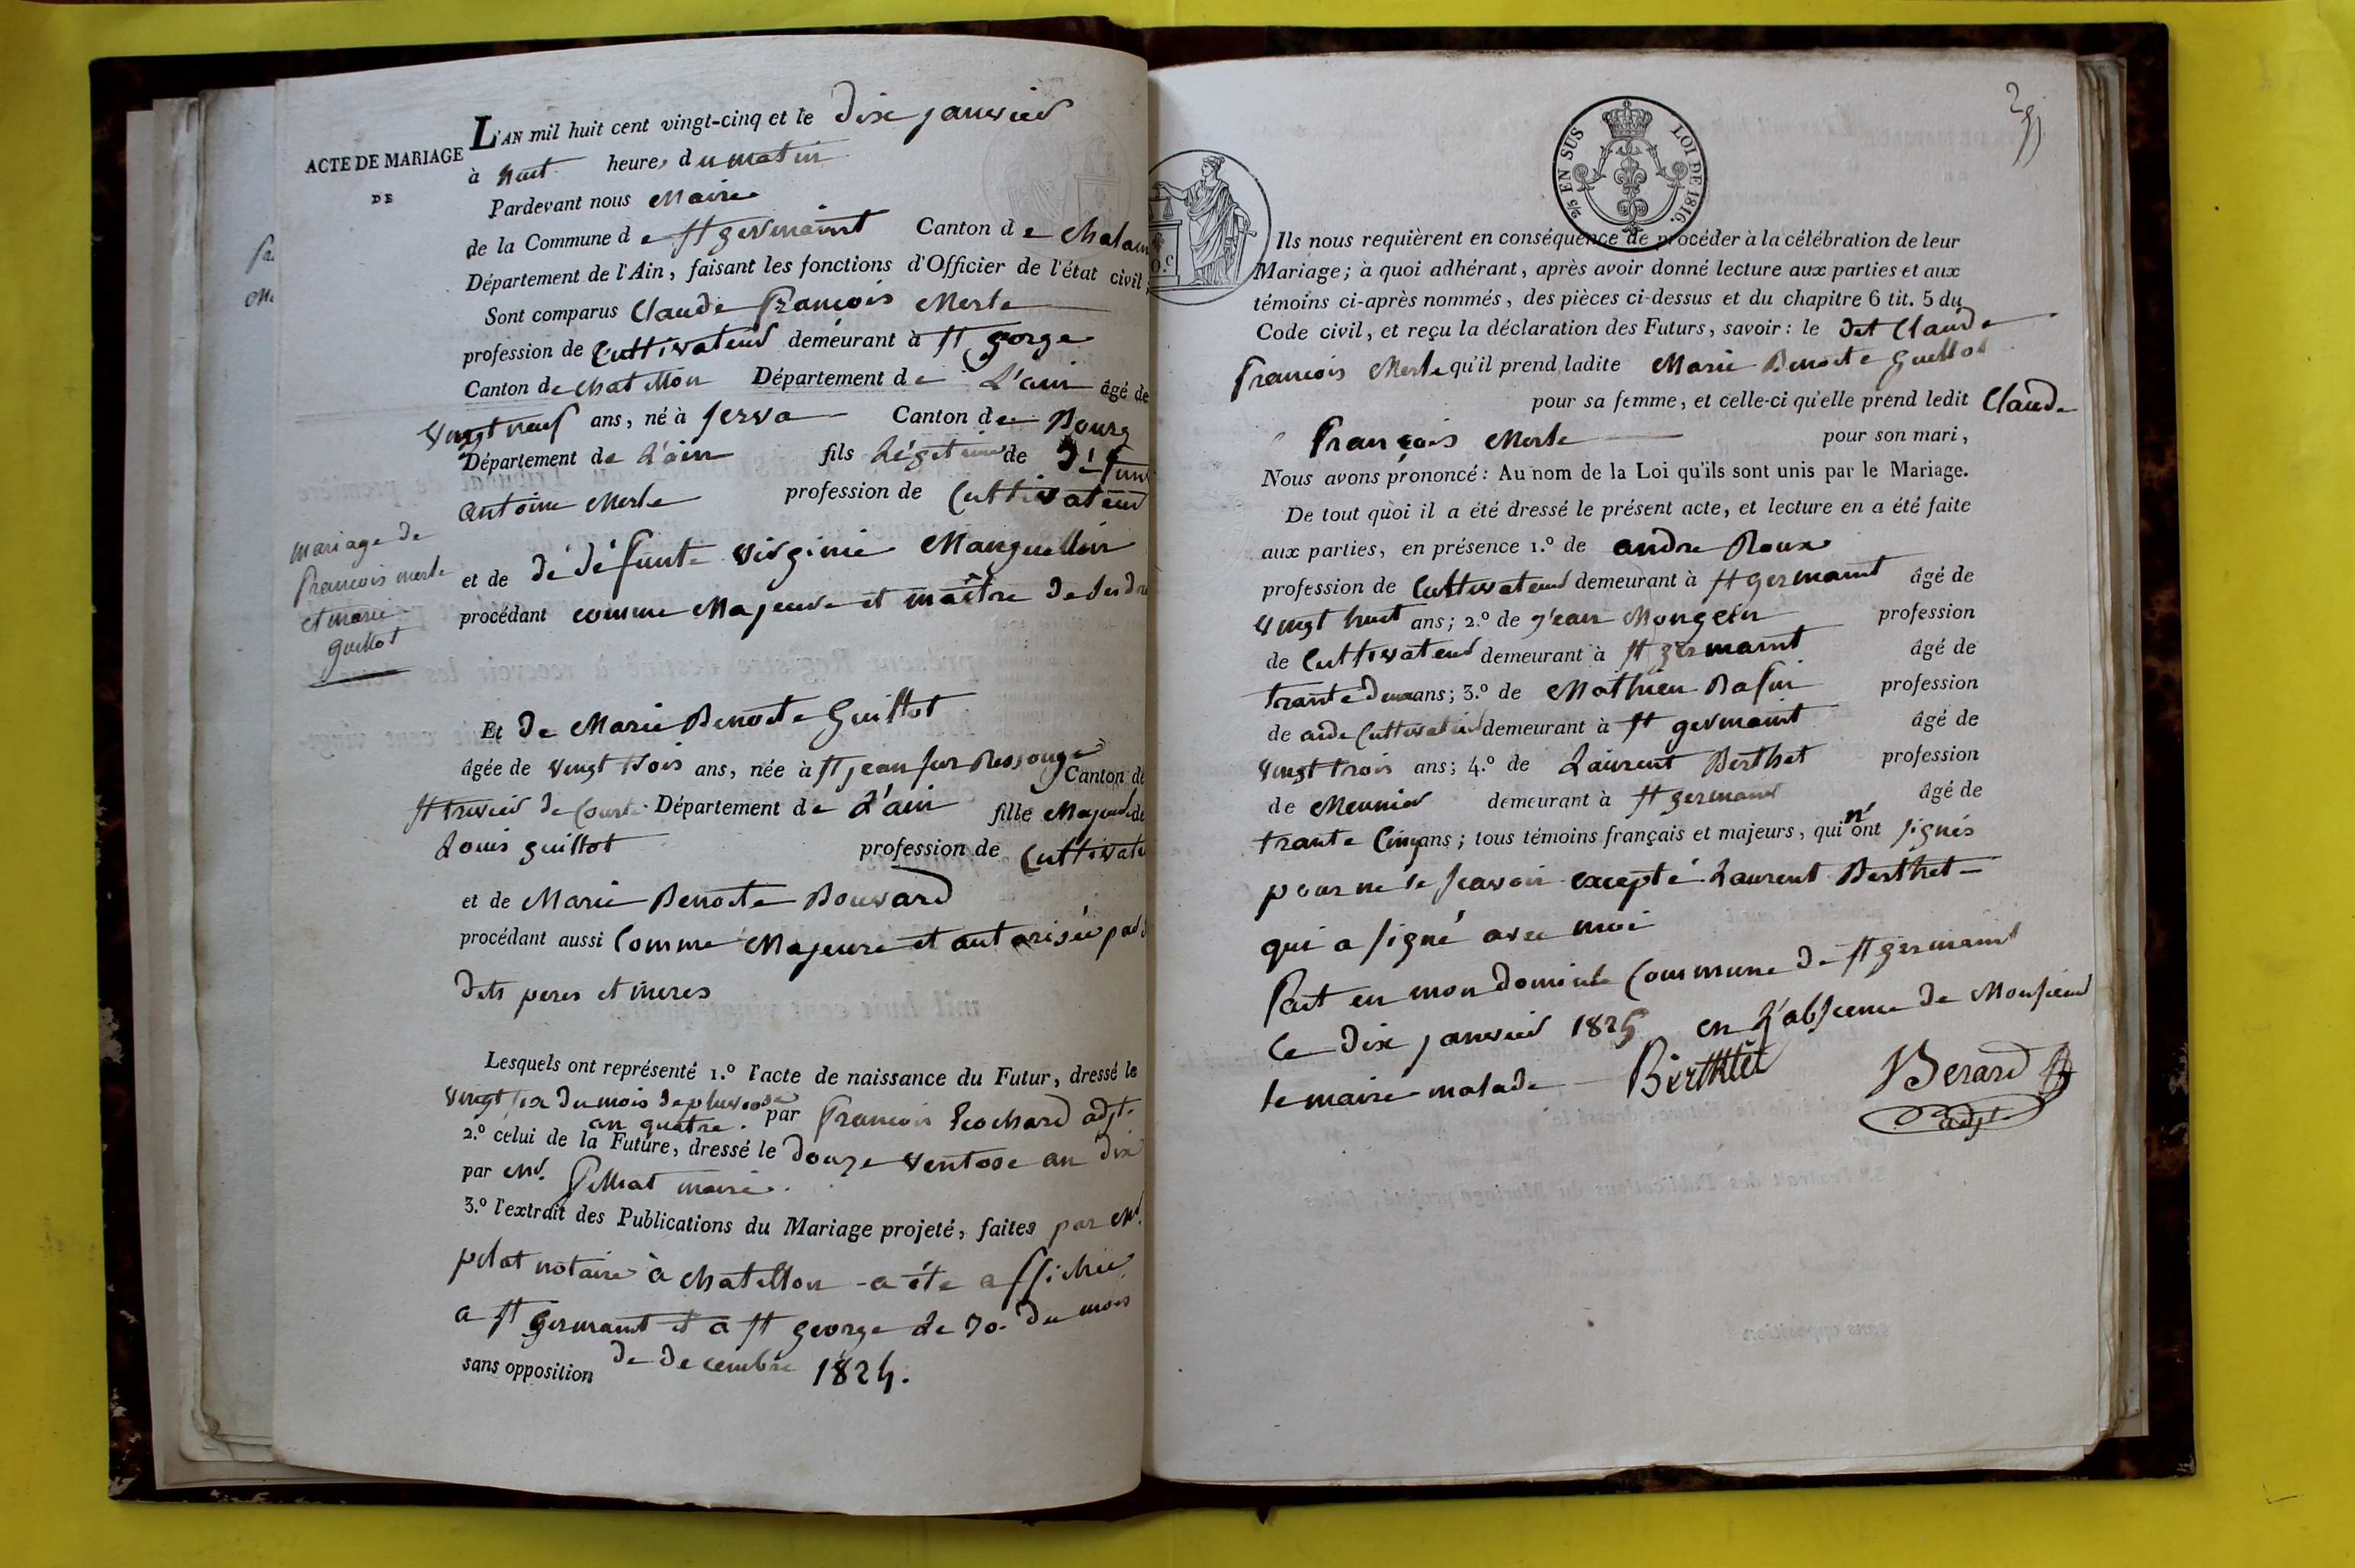 L'AN mil huit cent vingt-cinq et le dix janvier
ACTE DE MARIAGE
DE
à huit heures du matin
Pardevant nous Maire
de la Commune de st germaint Canton de Chalam
Département de l'Ain, faisant les fonctions d'Officier de l'état civil
Sont comparus Claude François Merle
profession de Cultivateur demeurant à st gorge
Canton de chatillon Département de L'ain âgé de
vingt neuf ans, né à serva Canton de Bourg
Département de L'ain fils Légitime de défunt
antoine Merle profession de Cultivateur
et de de défunte virginie Manguellin
procédant comme Majeure et maître de ses dr
mariage de
francois merle
et marie
guillot
Et de Marie Benoite Guillot
âgée de vingt trois ans, née à st jean sur Ressouze Canton de
st trivier de Courte Département de L'ain fille Majeure de
Louis guillot profession de Cultivate
et de Marie Benoite Bouvard
procédant aussi Comme Majeure et autorisée par s
dits peres et meres
Lesquels ont représenté 1.º l'acte de naissance du Futur, dressé le
vingt six du mois de pluviose
an quatre. par francois Ecochard adjt.
2.º celui de la Future, dressé le douze ventose an dix
par Mr. maire.
3.º l'extrait des Publications du Mariage projeté, faites par Mr.
pelat notaire à chatillon - a éte affichée
a st germaint et a st george le 30. du mois
sans opposition de decembre 1824.
2/5 EN SUS LOI DE 1816.
Ils nous requièrent en conséquence de procéder à la célébration de leur
Mariage; à quoi adhérant, après avoir donné lecture aux parties et aux
témoins ci-après nommés, des pièces ci-dessus et du chapitre 6 tit. 5 du
Code civil, et reçu la déclaration des Futurs, savoir: le dit Claude
François Merle qu'il prend ladite Marie Benoite Guillot
pour sa femme, et celle-ci qu'elle prend ledit Claude
François Merle pour son mari,
Nous avons prononcé: Au nom de la Loi qu'ils sont unis par le Mariage.
De tout quoi il a été dressé le présent acte, et lecture en a été faite
aux parties, en présence 1.º de andre Roux
profession de Cultivateur demeurant à st germaint âgé de
vingt huit ans; 2.º de jean Mongein profession
de Cultivateur demeurant à st germaint âgé de
trante deux ans; 3.º de Mathieu Basin profession
de aide Cultivateur demeurant à st germaint âgé de
vingt trois ans; 4.º de Laurent Berthet profession
de Meunier demeurant à st germaint âgé de
trante Cinq ans; tous témoins français et majeurs, qui n'ont signés
pour ne le scavoir excepté Laurent Berthet
qui a signé avec moi
fait en mon domicile Commune de st germaint
le dix janvier 1825 en L'abscence de Monsieur
le maire malade Berthtet Berard
adjt